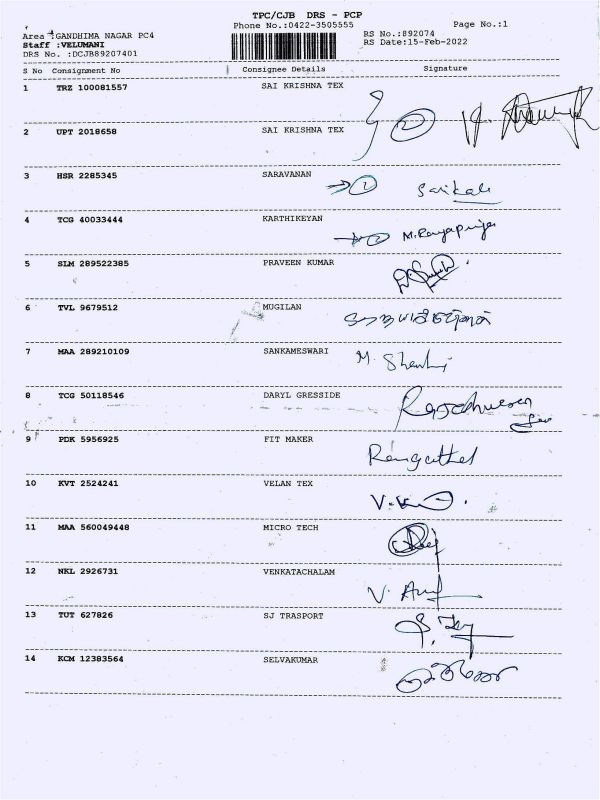 TPC/CJB DRS - PCP
Phone No.:0422-3505555 Page No.:1
Area :GANDHIMA NAGAR PC4 RS No.:892074
Staff :VELUMANI RS Date:15-Feb-2022
DRS No. :DCJB89207401
S No Consignment No Consignee Details Signature
1 TRZ 100081557 SAI KRISHNA TEX
2 UPT 2018658 SAI KRISHNA TEX 2
3 HSR 2285345 SARAVANAN
4 TCG 40033444 KARTHIKEYAN
5 SLM 289522385 PRAVEEN KUMAR
6 TVL 9679512 MUGILAN
7 MAA 289210109 SANKAMESWARI M.
8 TCG 50118546 DARYL GRESSIDE
9 PDK 5956925 FIT MAKER
10 KVT 2524241 VELAN TEX
11 MAA 560049448 MICRO TECH
12 NKL 2926731 VENKATACHALAM
13 TUT 627826 SJ TRASPORT
14 KCM 12383564 SELVAKUMAR